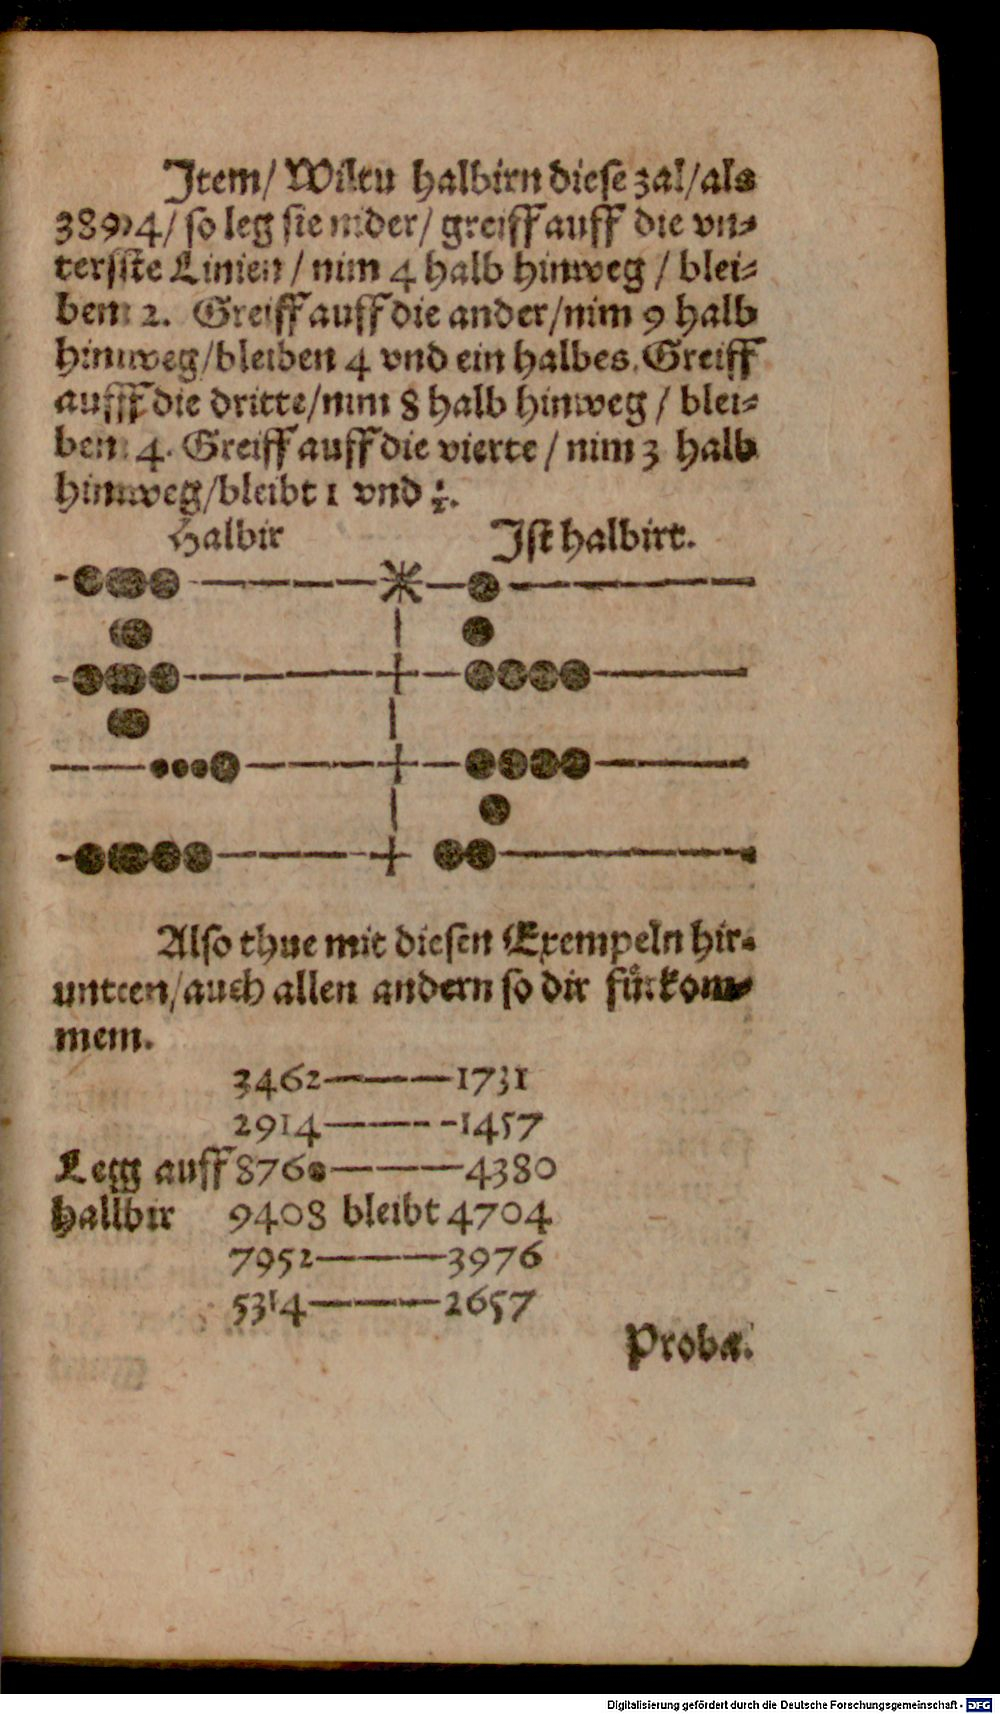 Item/ Wiltu halbirn diese zal/als
3894/ so leg sie nider/ greiff auff die vn⸗
tersste Linien / nim 4 halb hinweg / blei⸗
ben 2. Greiff auff die ander/nim 9 halb
hinweg/bleiben 4 vnd ein halbes. Greiff
aufff die dritte/nim 8 halb hinweg / blei⸗
ben 4. Greiff auff die vierte / nim 3 halb
hinweg/bleibt 1 vnd ½.
Halbir Ist halbirt.
Also thue mit diesen Exempeln hir⸗
untten/auch allen andern so dir fuͤrkom⸗
mem.
3462———1731
2914———1457
Legg auff 8760———4380
hallbir 9408 bleibt 4704
7952———3976
5314———2657
Proba.
Digitalisierung gefördert durch die Deutsche Forschungsgemeinschaft - DFG